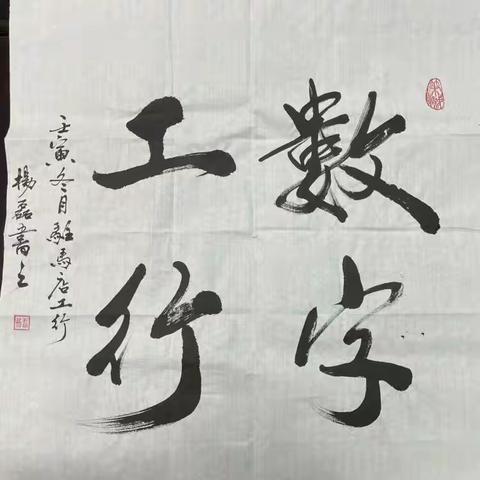 數字
工行
壬寅冬月駐馬店工行
楊磊書之